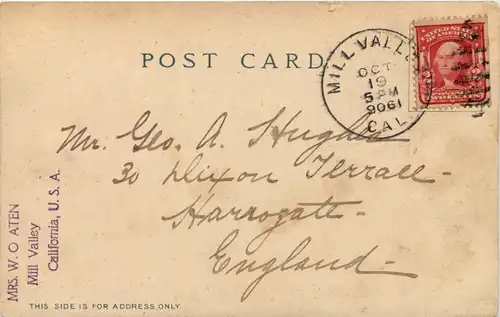 POST CARD
MILL VALLEY
OCT
19
5 PM
9061
CAL.
UNITED STATES
OF AMERICA
Mr. Geo. A. Hughes
30 Dixon Terrace
Harrogate
England
MRS. W. O ATEN
Mill Valley
California, U. S. A.
THIS SIDE IS FOR ADDRESS ONLY